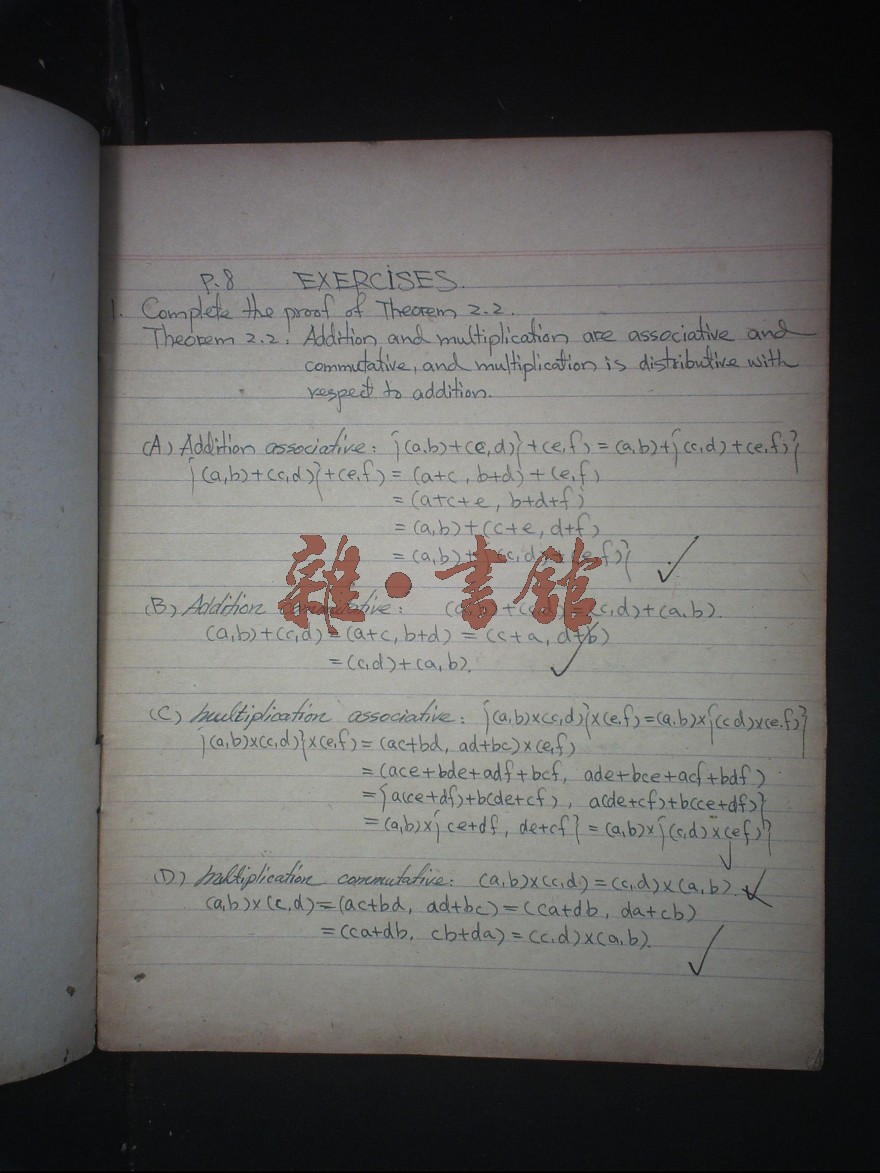 P.8 EXERCISES.
1. Complete the proof of Theorem 2.2.
Theorem 2.2: Addition and multiplication are associative and
commutative, and multiplication is distributive with
respect to addition.
(A) Addition associative: {(a,b)+(c,d)}+(e,f) = (a,b)+{(c,d)+(e,f)}
{(a,b)+(c,d)}+(e,f) = (a+c, b+d)+(e,f)
= (a+c+e, b+d+f)
= (a,b)+(c+e, d+f)
= (a,b)+{(c,d)+(e,f)}
雜·書館
(B) Addition commutative: (a,b)+(c,d)=(c,d)+(a,b).
(a,b)+(c,d)=(a+c, b+d) = (c+a, d+b)
=(c,d)+(a,b).
(C) multiplication associative: {(a,b)×(c,d)}×(e,f)=(a,b)×{(c,d)×(e,f)}
{(a,b)×(c,d)}×(e,f)=(ac+bd, ad+bc)×(e,f)
=(ace+bde+adf+bcf, ade+bce+acf+bdf)
={a(ce+df)+b(de+cf), a(de+cf)+b(ce+df)}
=(a,b)×{ce+df, de+cf}=(a,b)×{(c,d)×(e,f)}
(D) multiplication commutative: (a,b)×(c,d)=(c,d)×(a,b).
(a,b)×(c,d)=(ac+bd, ad+bc)=(ca+db, da+cb)
=(ca+db, cb+da)=(c,d)×(a,b).